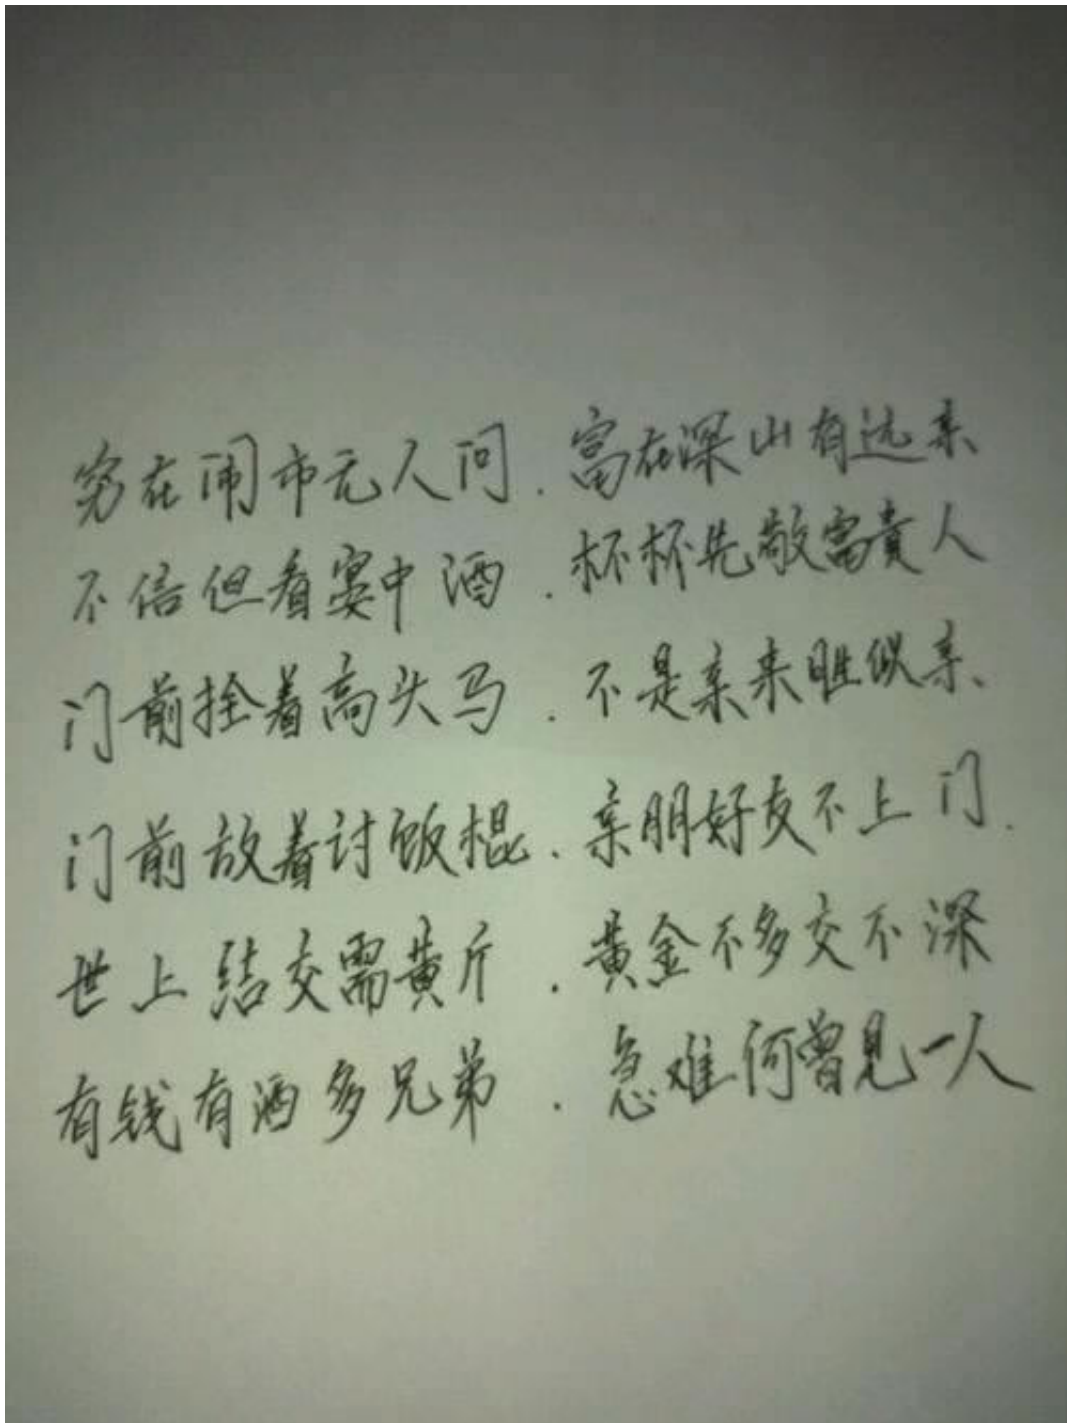 穷在闹市无人问.富在深山有远亲
不信但看宴中酒.杯杯先敬富贵人
门前拴着高头马.不是亲来胜似亲、
门前放着讨饭棍.亲朋好友不上门.
世上结交需黄斤.黄金不多交不深
有钱有酒多兄弟.急难何曾见一人